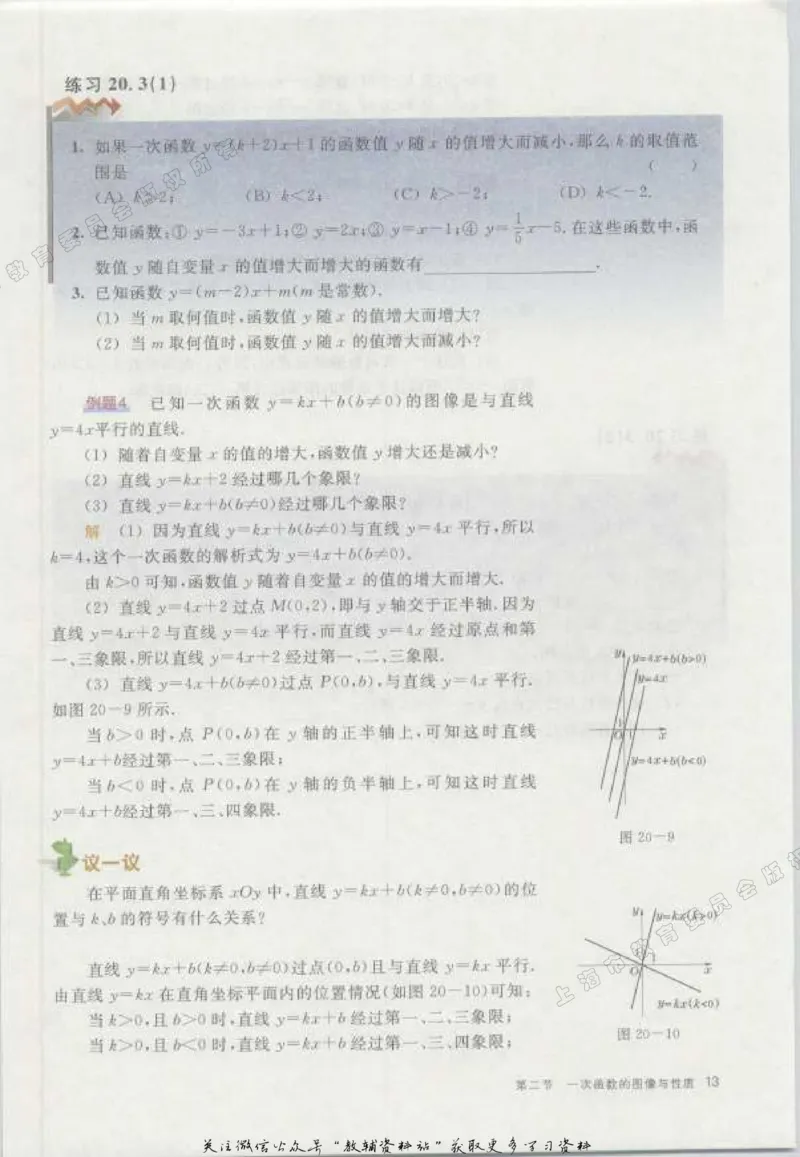 练习 20.3(1)
1. 如果一次函数 y=(k+2)x+1 的函数值 y 随 x 的值增大而减小,那么 k 的取值范
围是 ( )
(A) k>2; (B) k<2; (C) k>-2; (D) k<-2.
2. 已知函数:① y=-3x+1;② y=2x;③ y=x-1;④ y=1/5x-5. 在这些函数中,函
数值 y 随自变量 x 的值增大而增大的函数有____________.
3. 已知函数 y=(m-2)x+m(m 是常数).
(1) 当 m 取何值时,函数值 y 随 x 的值增大而增大?
(2) 当 m 取何值时,函数值 y 随 x 的值增大而减小?
例题4 已知一次函数 y=kx+b(b≠0)的图像是与直线
y=4x平行的直线.
(1) 随着自变量 x 的值的增大,函数值 y 增大还是减小?
(2) 直线 y=kx+2 经过哪几个象限?
(3) 直线 y=kx+b(b≠0)经过哪几个象限?
解 (1) 因为直线 y=kx+b(b≠0)与直线 y=4x 平行,所以
k=4,这个一次函数的解析式为 y=4x+b(b≠0).
由 k>0 可知,函数值 y 随着自变量 x 的值的增大而增大.
(2) 直线 y=4x+2 过点 M(0,2),即与 y 轴交于正半轴. 因为
直线 y=4x+2 与直线 y=4x 平行,而直线 y=4x 经过原点和第
一、三象限,所以直线 y=4x+2 经过第一、二、三象限.
(3) 直线 y=4x+b(b≠0)过点 P(0,b),与直线 y=4x 平行.
如图 20-9 所示.
当 b>0 时,点 P(0,b)在 y 轴的正半轴上,可知这时直线
y=4x+b经过第一、二、三象限;
当 b<0 时,点 P(0,b)在 y 轴的负半轴上,可知这时直线
y=4x+b经过第一、三、四象限.
y
y=4x+b(b>0)
y=4x
1
O 1 x
y=4x+b(b<0)
图 20-9
议一议
在平面直角坐标系 xOy 中,直线 y=kx+b(k≠0,b≠0)的位
置与 k、b 的符号有什么关系?
直线 y=kx+b(k≠0,b≠0)过点(0,b)且与直线 y=kx 平行.
由直线 y=kx 在直角坐标平面内的位置情况(如图 20-10)可知:
当 k>0,且 b>0 时,直线 y=kx+b 经过第一、二、三象限;
当 k>0,且 b<0 时,直线 y=kx+b 经过第一、三、四象限;
y
y=kx(k>0)
O x
y=kx(k<0)
图 20-10
第二节 一次函数的图像与性质 13
关注微信公众号“教辅资料站”获取更多学习资料
教育委员会版权所有
上海市教育委员会版权